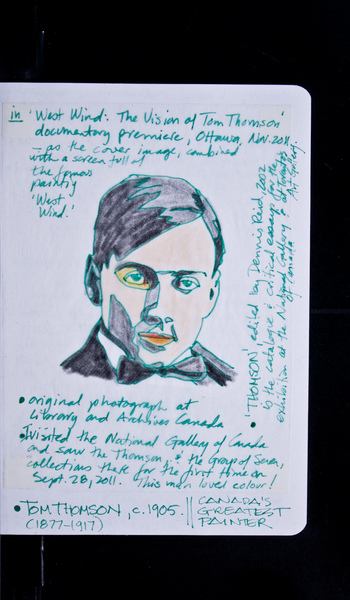 in 'West Wind: The Vision of Tom Thomson'
documentary premiere, Ottawa, Nov. 2011
– as the cover image, combined
with a screen full of
the famous
painting
'West
Wind.'
• 'THOMSON', edited by Dennis Reid, 2002
is the catalogue & critical essays for the
exhibition at the National Gallery &
of Canada
Art Gallery.
• original photograph at
Library and Archives Canada
• I visited the National Gallery of Canada
and saw the Thomson & the Group of Seven,
collections there for the first time on
Sept. 28, 2011. This man loved colour!
• TOM THOMSON, c. 1905. || CANADA'S
(1877-1917) GREATEST
PAINTER